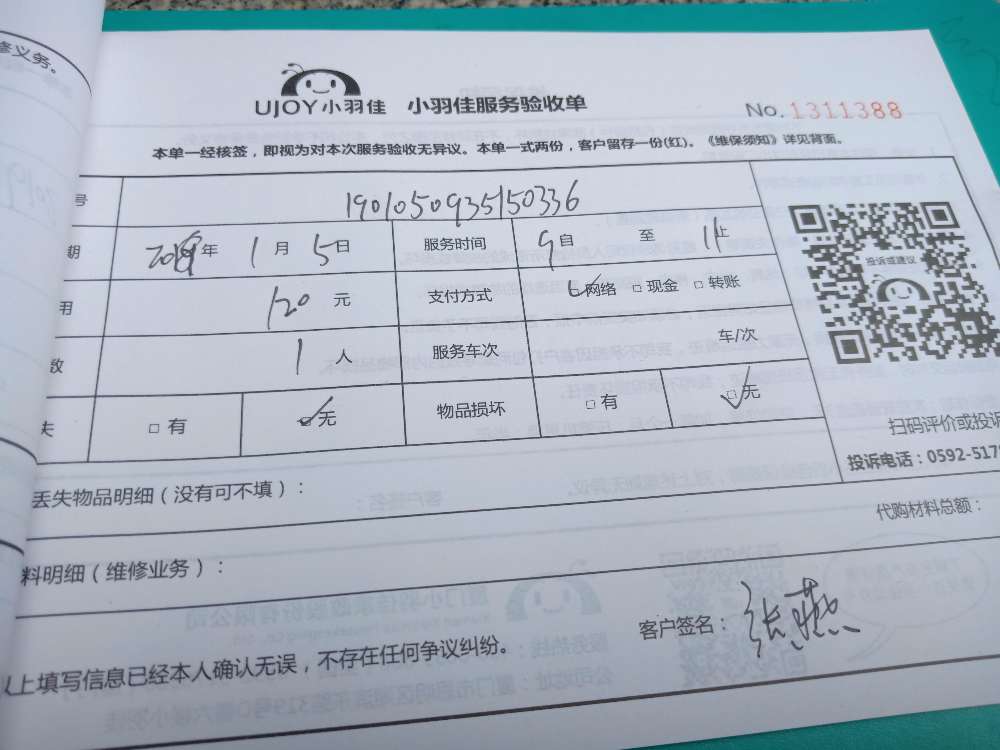 修义务。
UJOY小羽佳 小羽佳服务验收单
No. 1311388
本单一经核签，即视为对本次服务验收无异议。本单一式两份，客户留存一份(红)。《维保须知》详见背面。
号 190105093515033​6
期 2019年 1月 5日 服务时间 9自 至 11止
用 120元 支付方式 □网络 □现金 □转账
数 1人 服务车次 车/次
失 □有 □无 物品损坏 □有 □无
投诉或建议
扫码评价或投诉
投诉电话：0592-517
丢失物品明细（没有可不填）：
代购材料总额：
料明细（维修业务）：
以上填写信息已经本人确认无误，不存在任何争议纠纷。
客户签名：张燕